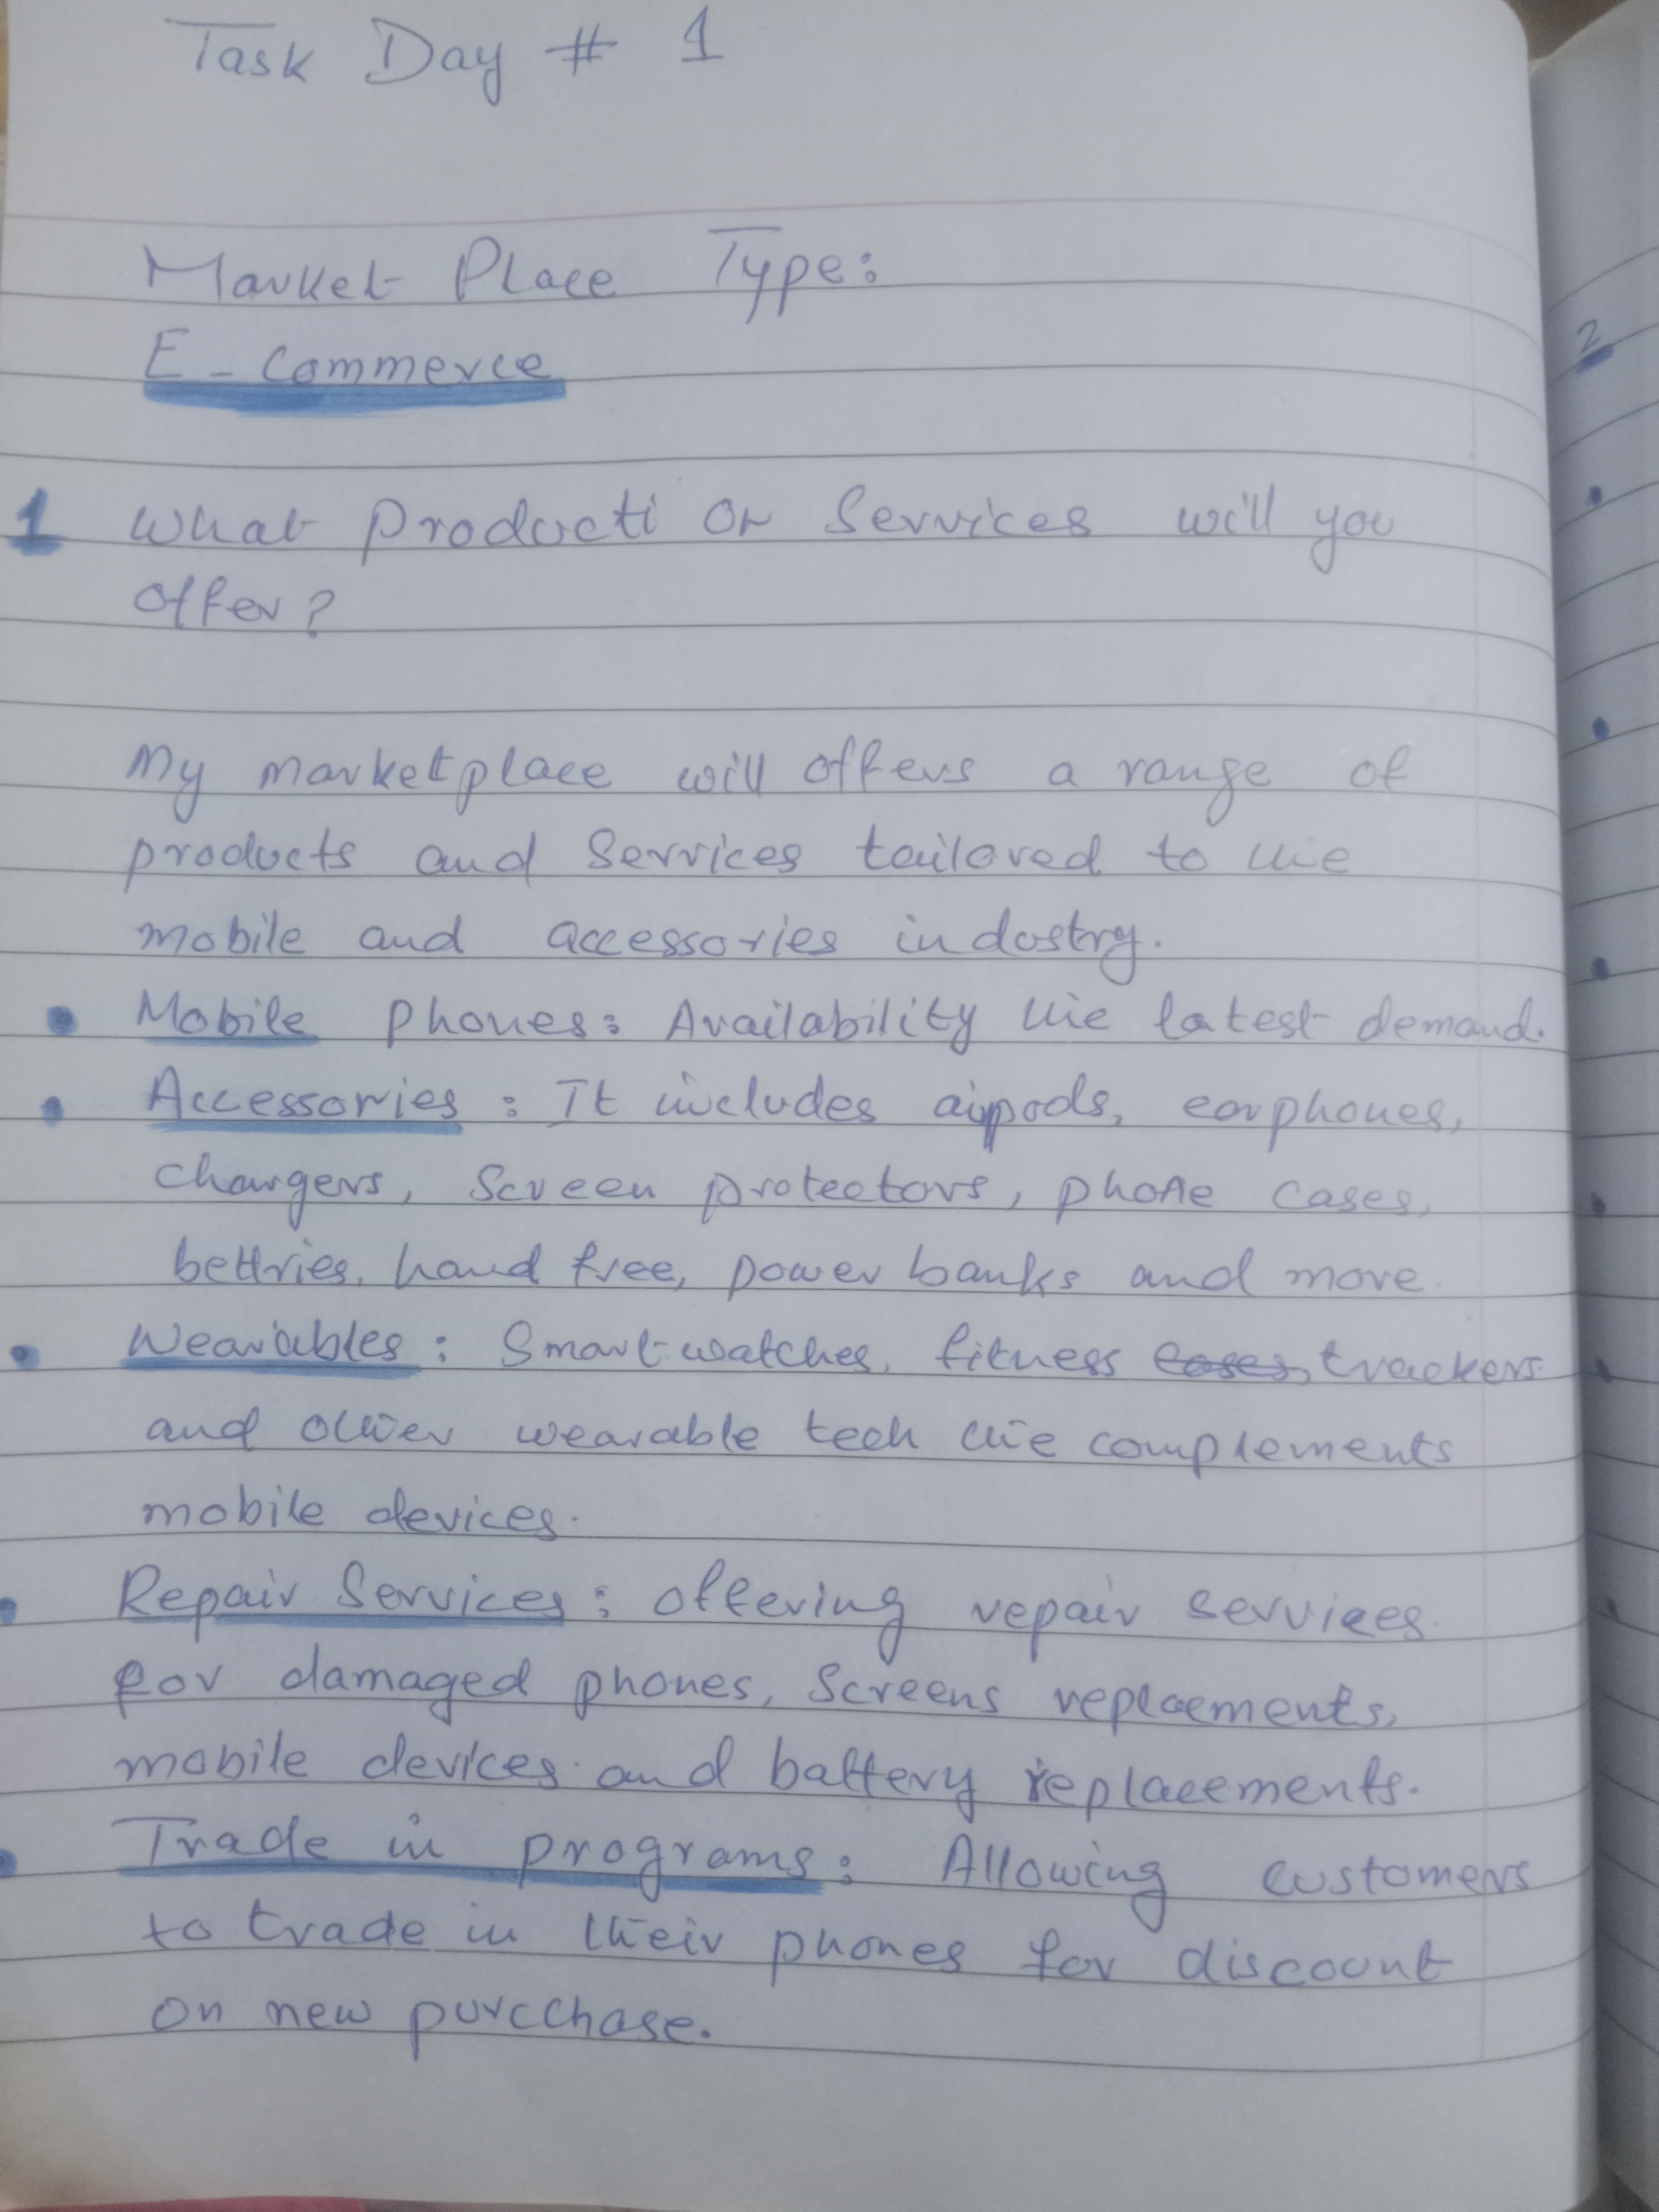 Task Day # 1
Market Place Type:
E - Commerce
1 What Producti or Services will you
offer?
My marketplace will offers a range of
products and Services tailored to the
mobile and accessories indostry.
• Mobile phones: Availability the latest demand.
• Accessories : It includes airpods, earphones,
chargers, Screen protectors, phone cases,
bettries, hand free, power banks and more.
• Wearables : Smart watches, fitness cases, trackers
and other wearable tech the complements
mobile devices.
• Repair Services : offering repair services
for damaged phones, Screens replcements,
mobile devices and battery replacements.
• Trade in programs : Allowing customers
to trade in their phones for discount
on new purcchase.
2